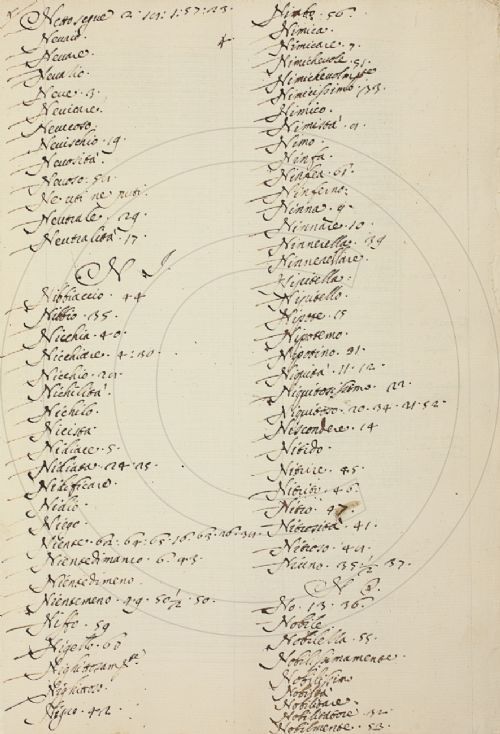 Nevaio.
Nevare.
Nevatio.
Neve. 3.
Nevicare.
Nevicoso.
Nevischio. 19.
Nevosità.
Nevoso. 50.
Ne uti ne puti.
Neutrale. 29.
Neutralità. 17.
N I.
Nibbiaccio. 44
Nibbio. 35.
Nicchia. 40.
Nicchiare. 4: 30.
Nicchio. 20.
Nichilità
Nichilo.
Nicistà
Nidiace. 5.
Nidiata. 24. 25.
Nidificare.
Nidio.
Niego
Niente.
Nientedimanco. 6. 43.
Nientedimeno.
Nientemeno. 49. 50 1/2. 50.
Nifo. 59
Nigello. 60
Nighittoso.
Nimbo. 56.
Nimica.
Nimicare. 7.
Nimichevole. 51.
Nimichevolmte
Nimicissimo. 33.
Nimico.
Nimistà. 9.
Nimo.
Ninfa.
Ninfea. 61.
Ninferno.
Ninna. 9.
Ninnare. 10.
Ninnerella. 39
Ninnerellare.
Nipitella.
Nipitello.
Nipote. 15
Nipotino. 31.
Niquità. 11. 12.
Niquitosissimo. 22.
Niquitoso. 20. 34. 21. 52.
Niscondere. 14
Nitido.
Nitrire. 45.
Nitrito. 46.
Nitro. 47.
Nitrosità. 41.
Nitroso. 44.
Niuno. 35 1/2. 37.
N O.
No. 13. 36.
Nobile
Nobilella. 55.
Nobilissimamente.
Nobilissimo
Nobiltà
Nobilitare.
Nobilitatore 32.
Nobilmente. 53.